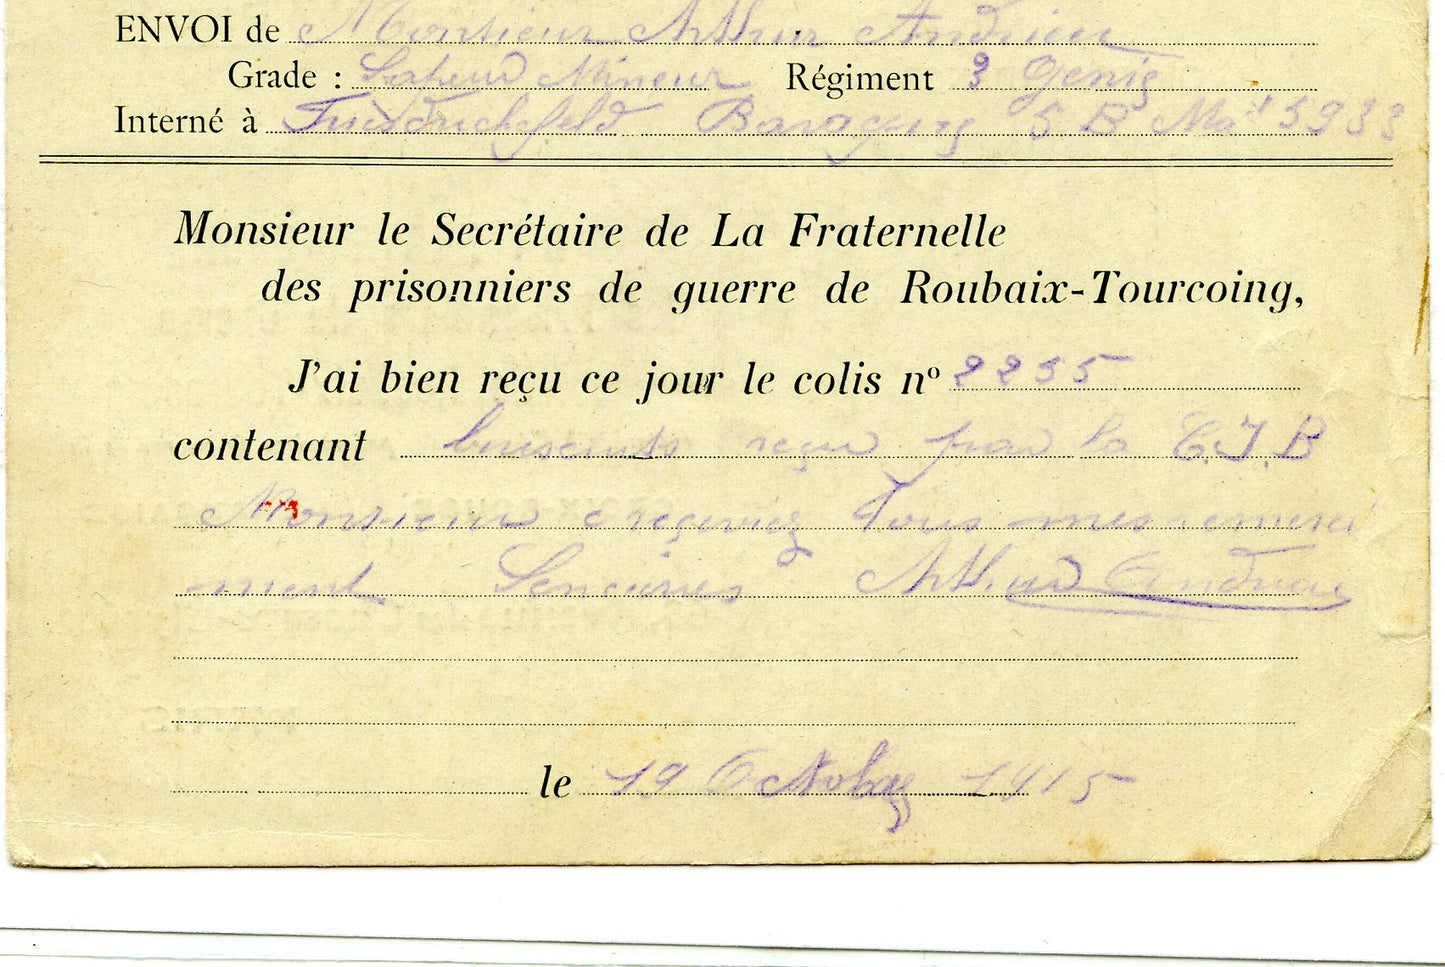 ENVOI de Monsieur Arthur Andrieu
Grade : Sapeur Mineur Régiment 3 Genie
Interné à Friedrichsfeld Baraque 5 B Mle 5933
Monsieur le Secrétaire de La Fraternelle
des prisonniers de guerre de Roubaix-Tourcoing,
J'ai bien reçu ce jour le colis nº 2255
contenant buiscuits reçu par la
Monsieur receviez tous mes remerci
ment Sencierres Arthur Andrieu
le 19 Octobre 1915